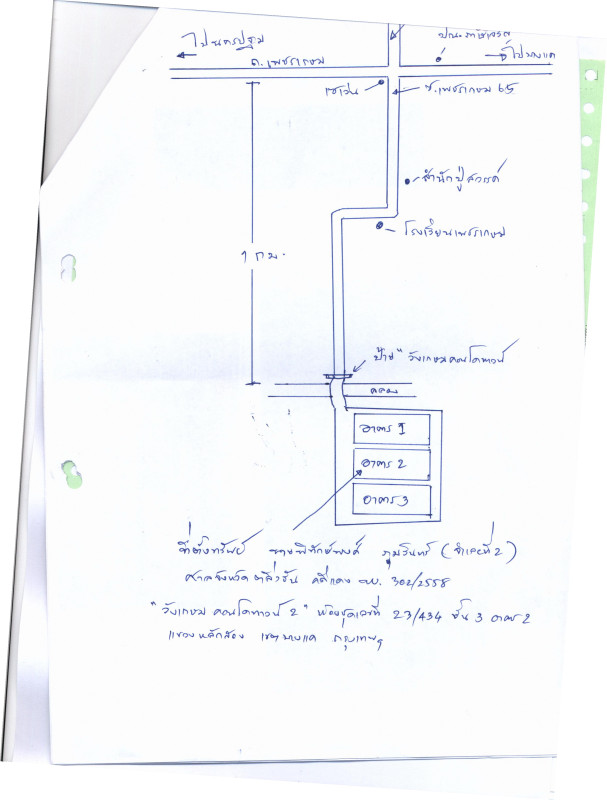 ไปนครปฐม
ถ.เพชรเกษม
ไปบางแค
เซเว่น
ซ.เพชรเกษม 65
สำนักปู่สวรรค์
โรงเรียนเพชรเกษม
1 กม.
ป้าย "วังเกษมคอนโดทาวน์
คลอง
อาคาร 1
อาคาร 2
อาคาร 3
ที่ตั้งทรัพย์ นายพิทักษ์พงศ์ ภุมรินทร์ (จำเลยที่ 2)
ศาลจังหวัดตลิ่งชัน คดีแดง ผบ. 302/2558
"วังเกษม คอนโดทาวน์ 2" ห้องชุดเลขที่ 23/434 ชั้น 3 อาคาร 2
แขวงหลักสอง เขตบางแค กรุงเทพฯ